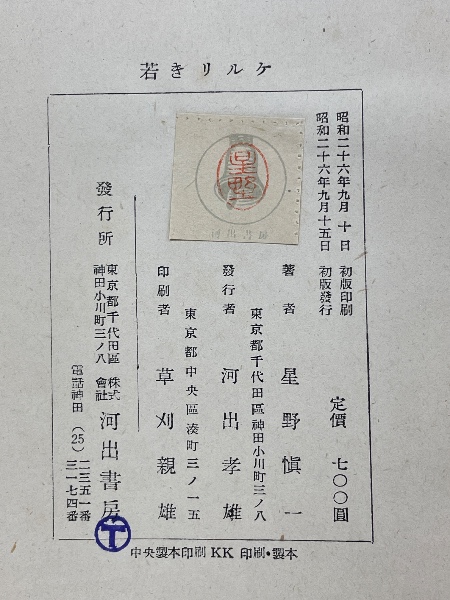 若きリルケ
昭和二十六年九月 十日 初版印刷
昭和二十六年九月十五日 初版發行
定價 七〇〇圓
著者 星野愼一
東京都千代田區神田小川町三ノ八
發行者 河出孝雄
東京都中央區湊町三ノ一五
印刷者 草刈親雄
發行所
東京都千代田區
神田小川町三ノ八
株式
會社
河出書房
電話神田(25)
二三五一番
三一七四番
星野
河出書房
T
中央製本印刷 KK 印刷・製本